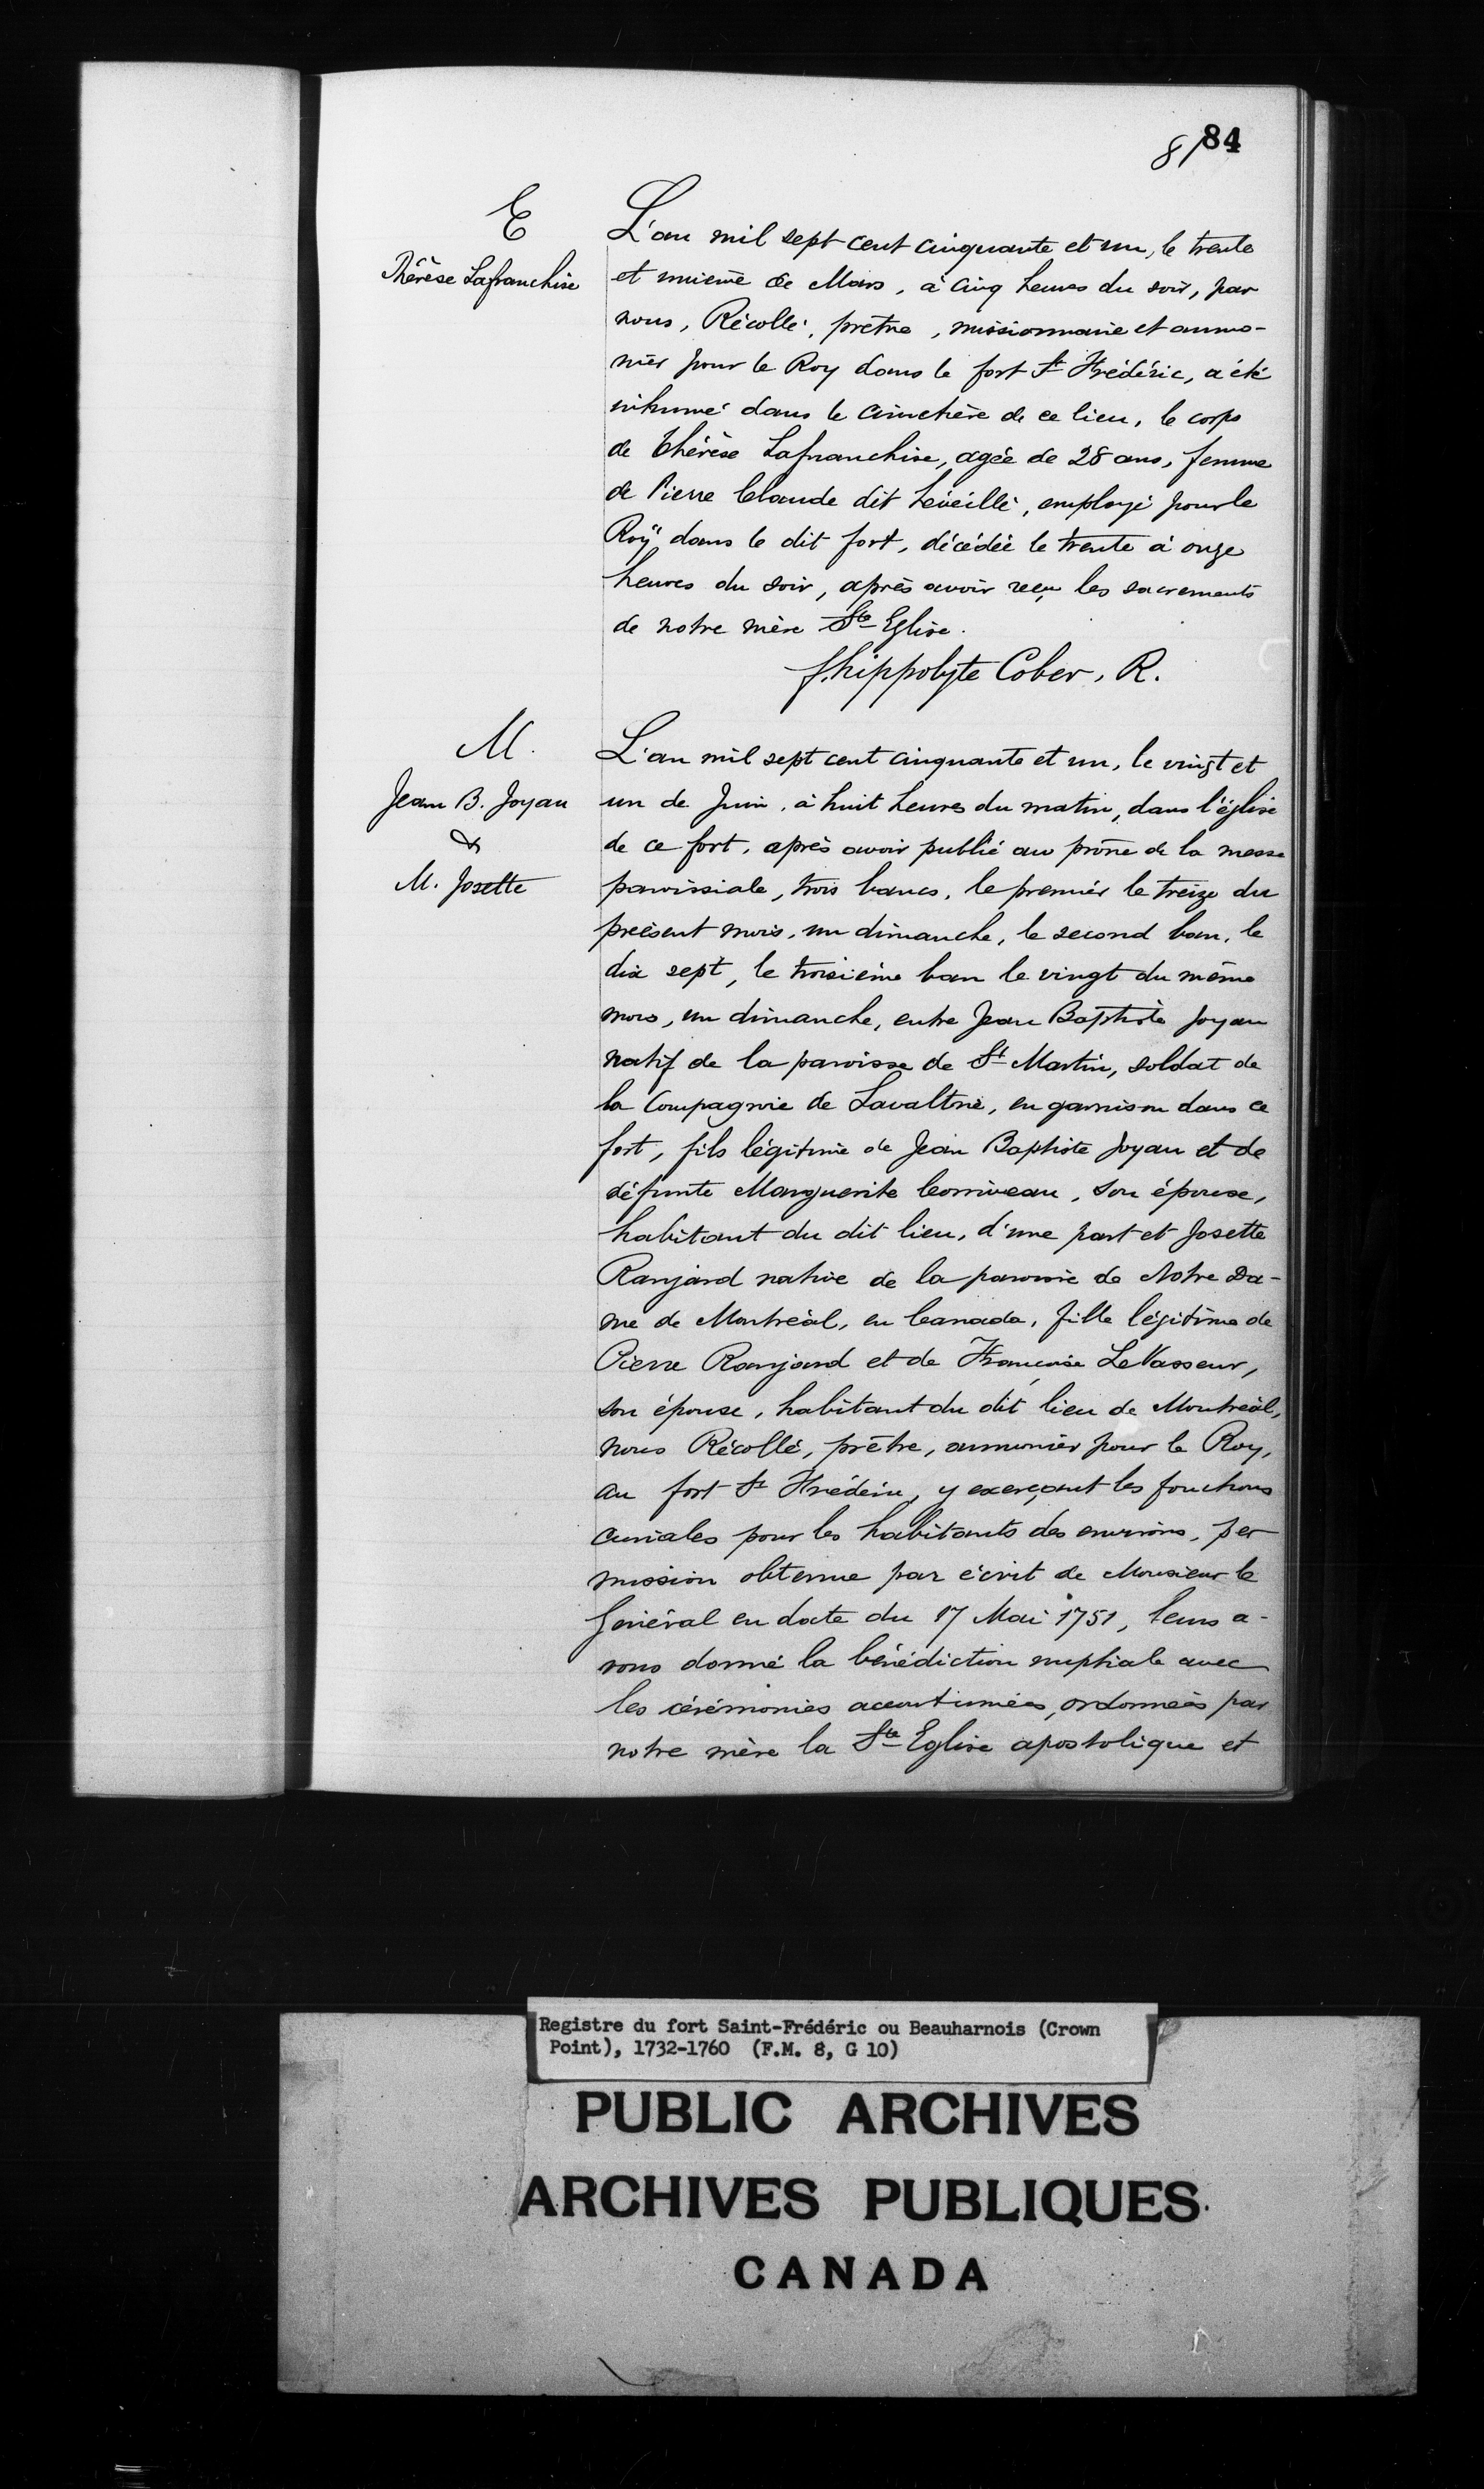 84
81
E
Thérèse Lafranchise
L'an mil sept cent cinquante et un, le trente
et unième de Mars, à cinq heures du soir, par
nous, Récollé, prêtre, missionnaire et aumo-
nier pour le Roy dans le fort St Frédéric, a été
inhumé dans le cimetière de ce lieu, le corps
de Thérèse Lafranchise, agée de 28 ans, femme
de Pierre Claude dit Léveillé, employé pour le
Roÿ dans le dit fort, décédée le trente à onze
heures du soir, après avoir reçu les sacrements
de notre mère Ste Eglise.
f. hippolyte Cober, R.
M.
Jean B. Joyau
&
M. Josette
L'an mil sept cent cinquante et un, le vingt et
un de Juin, à huit heures du matin, dans l'église
de ce fort, après avoir publié au prône de la messe
paroissiale, trois bancs, le premier le treize du
présent mois, un dimanche, le second ban, le
dix sept, le troisième ban le vingt du même
mois, un dimanche, entre Jean Baptiste Joyau
natif de la paroisse de St Martin, soldat de
la Compagnie de Lavaltrie, en garnison dans ce
fort, fils légitime de Jean Baptiste Joyau et de
défunte Marguerite Corriveau, son épouse,
habitant du dit lieu, d'une part et Josette
Ranjard native de la paroisse de Notre Da-
me de Montréal, en Canada, fille légitime de
Pierre Ranjard et de Françoise LeVasseur,
son épouse, habitant du dit lieu de Montréal,
nous Récollé, prêtre, aumonier pour le Roy,
au fort St Frédéric, y exerçant les fonctions
curiales pour les habitants des environs, per
mission obtenue par écrit de Monsieur le
Général en date du 17 Mai 1751, leurs a-
vons donné la bénédiction nuptiale avec
les cérémonies accoutumées, ordonnées par
notre mère la Ste Eglise apostolique et
Registre du fort Saint-Frédéric ou Beauharnois (Crown
Point), 1732-1760 (F.M. 8, G 10)
PUBLIC ARCHIVES
ARCHIVES PUBLIQUES
CANADA